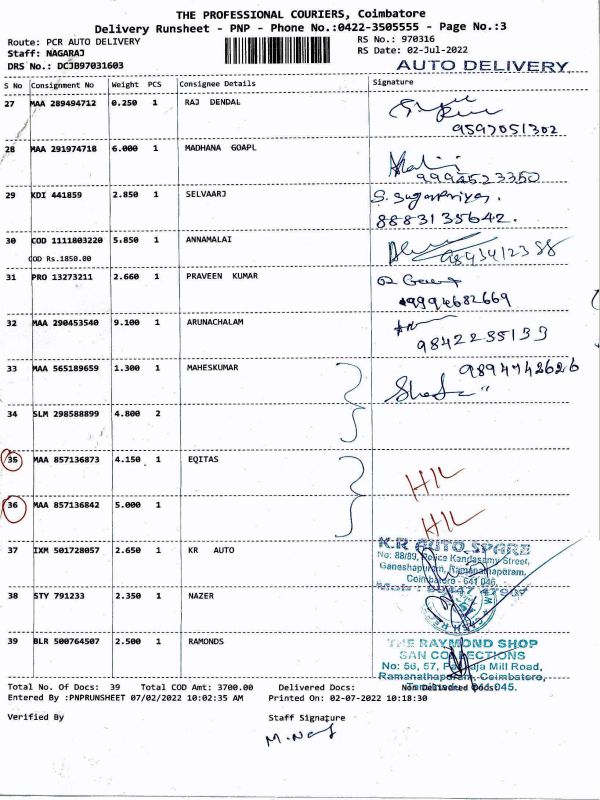 THE PROFESSIONAL COURIERS, Coimbatore
Delivery Runsheet - PNP - Phone No.:0422-3505555 - Page No.:3
Route: PCR AUTO DELIVERY
RS No.: 970316
Staff: NAGARAJ
RS Date: 02-Jul-2022
DRS No.: DCJB97031603
AUTO DELIVERY
S No Consignment No Weight PCS Consignee Details Signature
27 MAA 289494712 0.250 1 RAJ DENDAL
9597051302
28 MAA 291974718 6.000 1 MADHANA GOAPL
9994523350
29 KDI 441859 2.850 1 SELVAARJ S. Sugapriya.
8883135642.
30 COD 1111803220 5.850 1 ANNAMALAI
COD Rs.1850.00
31 PRO 13273211 2.660 1 PRAVEEN KUMAR
9994682669
32 MAA 290453540 9.100 1 ARUNACHALAM
9842235133
33 MAA 565189659 1.300 1 MAHESKUMAR
34 SLM 298588899 4.800 2
35 MAA 857136873 4.150 1 EQITAS
36 MAA 857136842 5.000 1
37 IXM 501728057 2.650 1 KR AUTO
K.R AUTO SPARE
No: 88/89, Police Kandasamy Street,
Ganeshapuram, Ramanathapuram,
Coimbatore - 641 045.
38 STY 791233 2.350 1 NAZER
39 BLR 500764507 2.500 1 RAMONDS
THE RAYMOND SHOP
No: 56, 57, Mill Road,
Ramanathapuram, Coimbatore,
Total No. Of Docs: 39 Total COD Amt: 3700.00 Delivered Docs: Non Delivered Docs:
Entered By :PNPRUNSHEET 07/02/2022 10:02:35 AM Printed On: 02-07-2022 10:18:30
Verified By Staff Signature